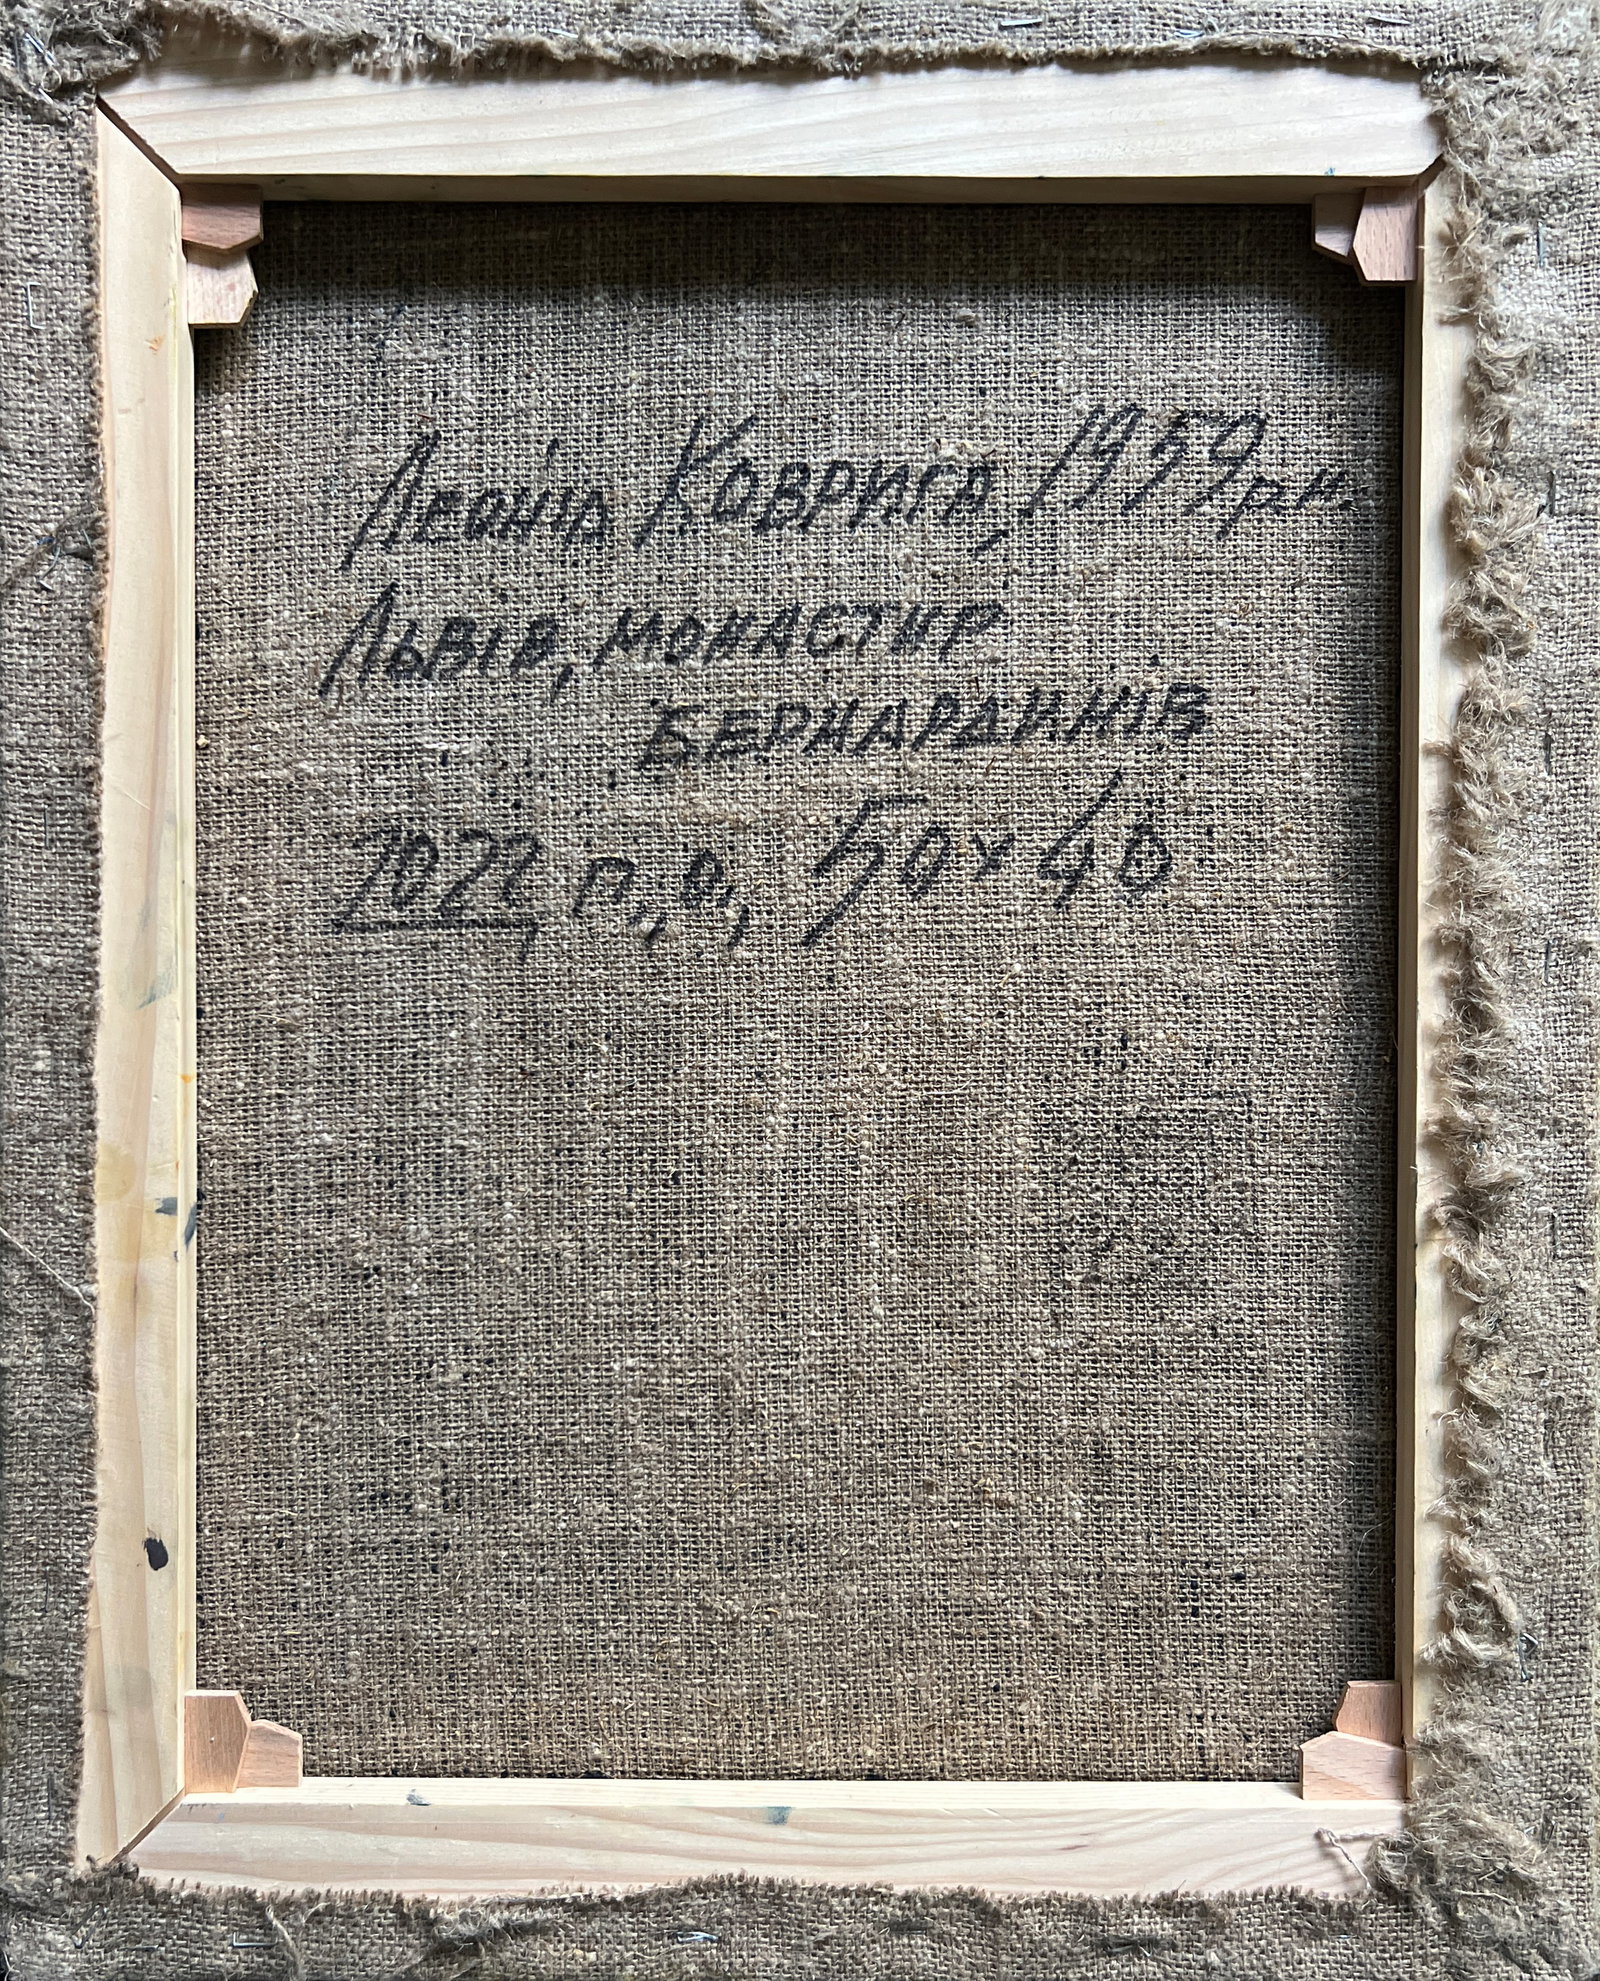 Леонід Коврига, 1959 р.н.
Львів, монастир
Бернардинів
2022, п,о, 50х40.